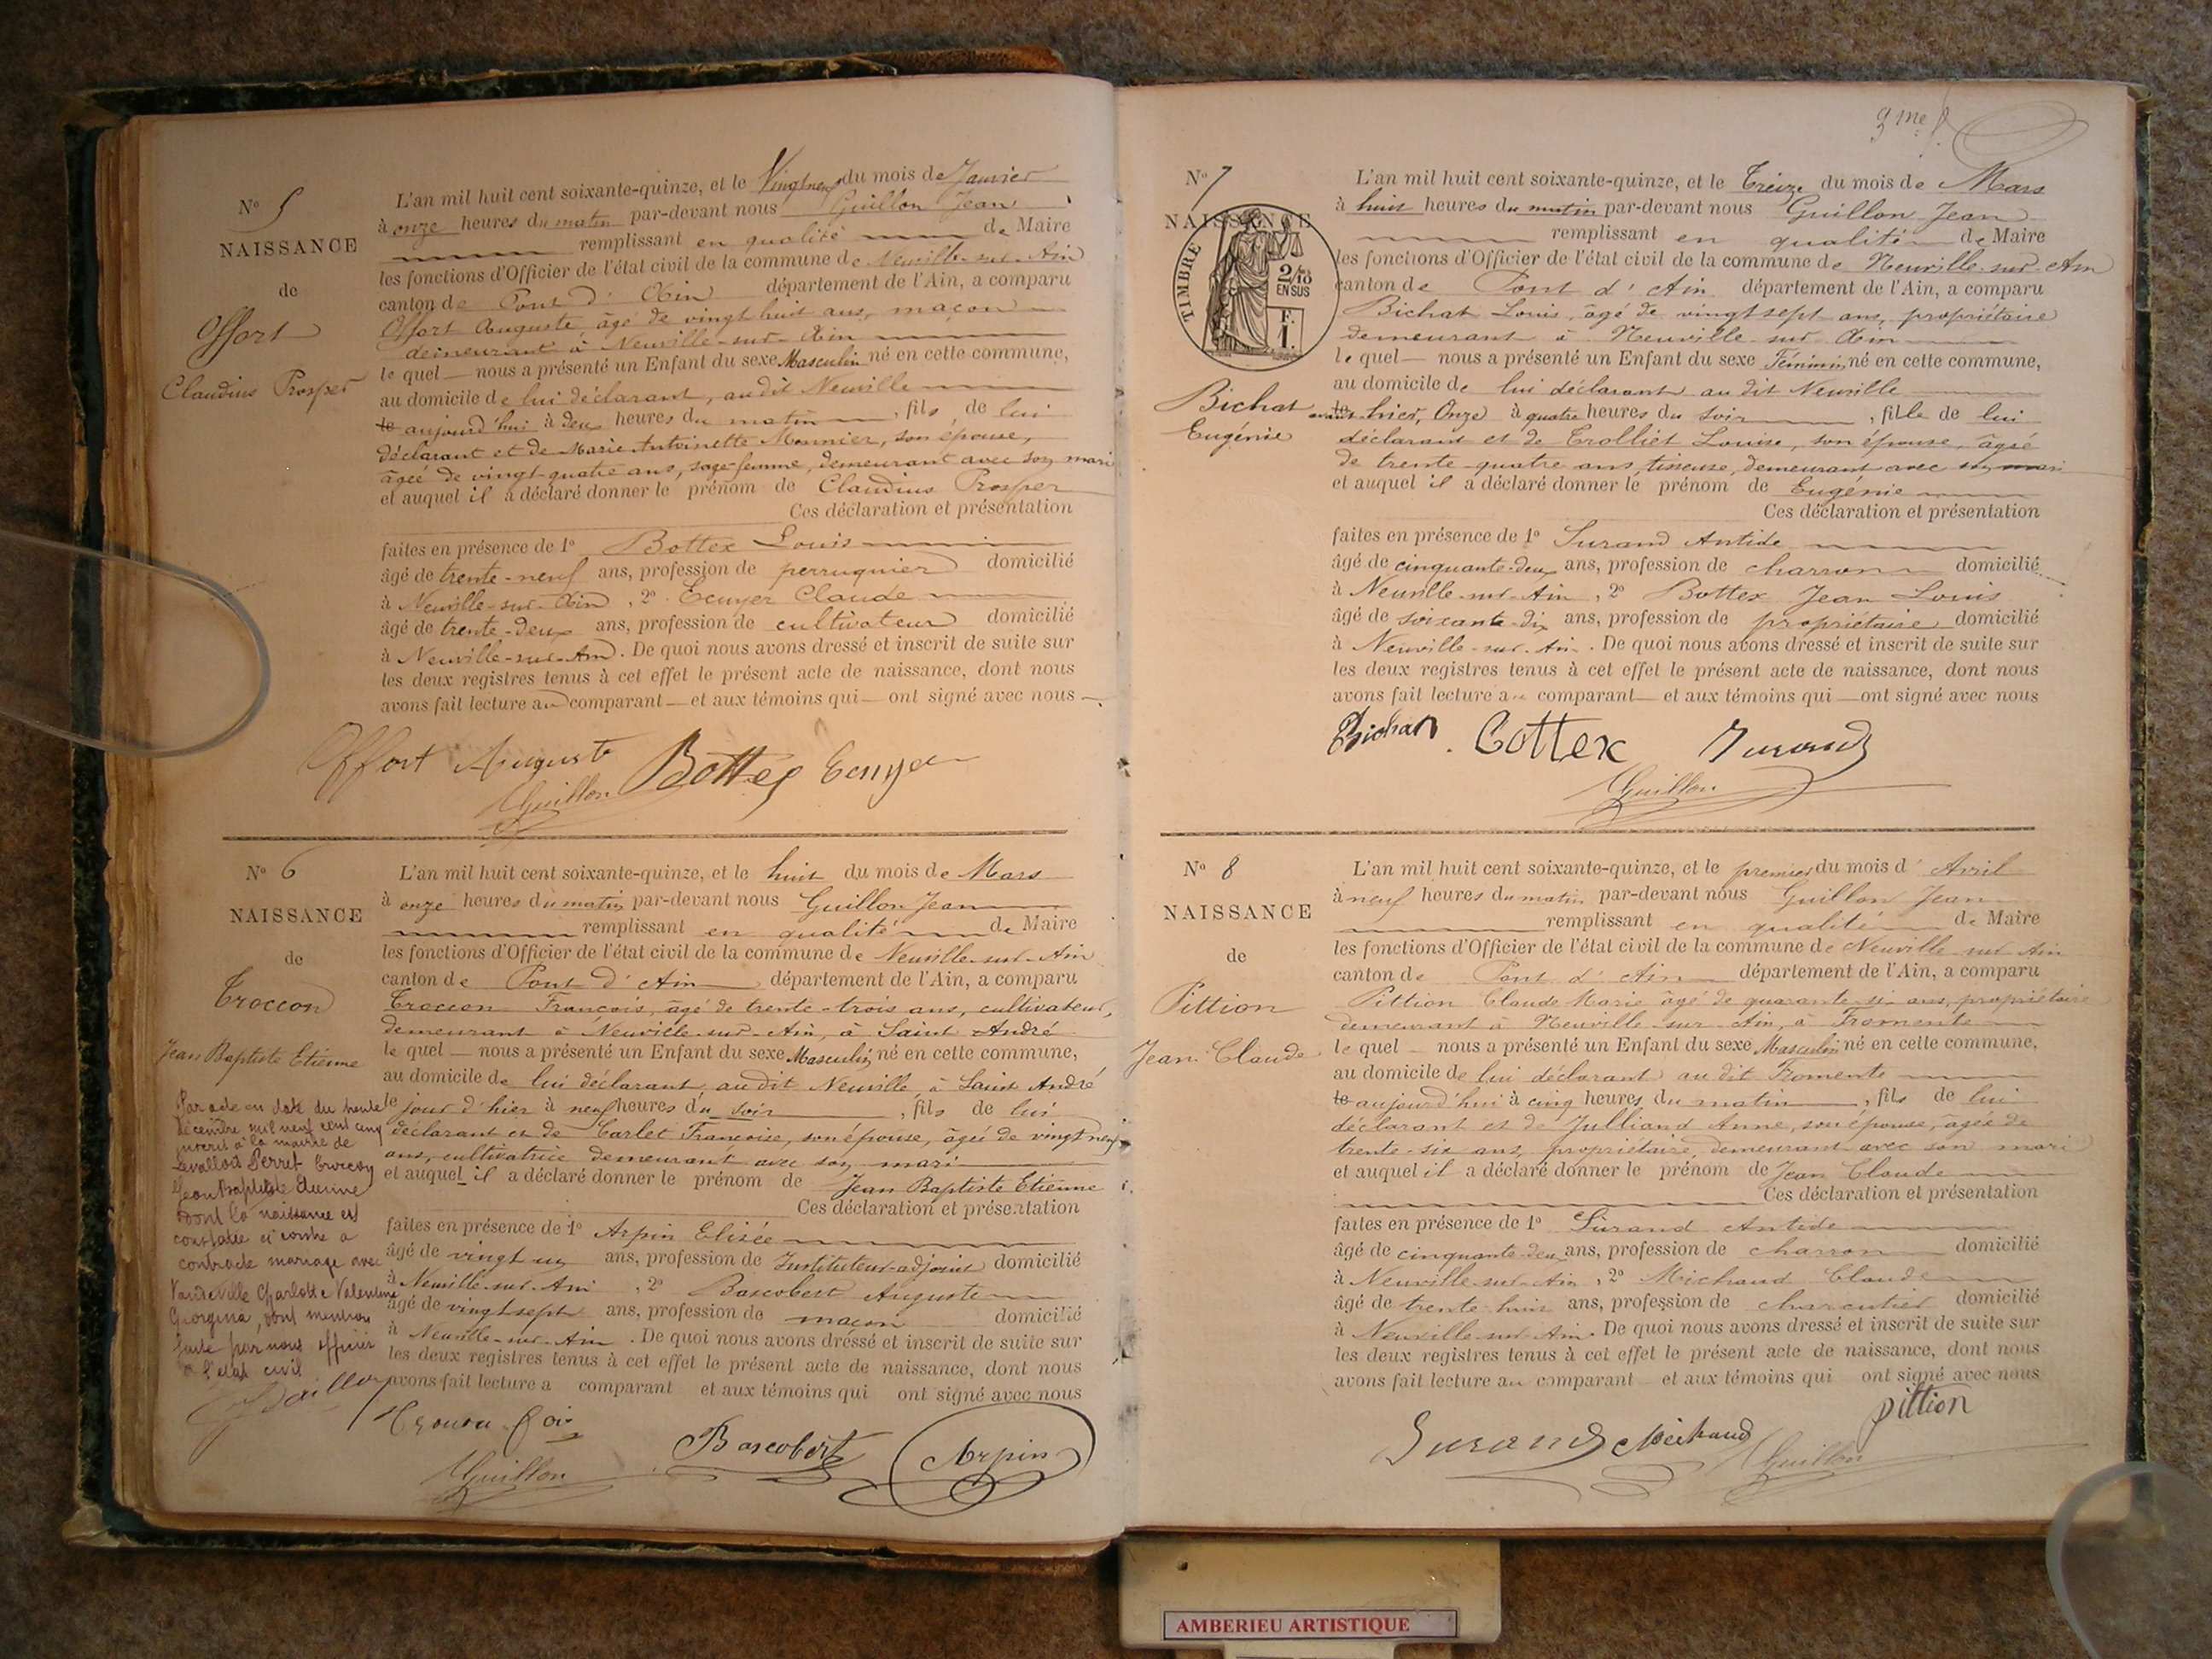 Nº 5
NAISSANCE
de
Offort
Claudius Prosper
L'an mil huit cent soixante-quinze, et le Vingt neuf du mois de Janvier
à onze heures du matin par-devant nous Guillon Jean
remplissant en qualité de Maire
les fonctions d'Officier de l'état civil de la commune de Neuville-sur-Ain
canton de Pont d'Ain département de l'Ain, a comparu
Offort Auguste, âgé de vingt huit ans, maçon
demeurant à Neuville-sur-Ain
le quel nous a présenté un Enfant du sexe Masculin né en cette commune,
au domicile de lui déclarant, au dit Neuville
le aujourd'hui à deux heures du matin, fils de lui
déclarant et de Marie Antoinette Monnier, son épouse,
âgée de vingt-quatre ans, sage-femme, demeurant avec son mari
et auquel il a déclaré donner le prénom de Claudius Prosper
Ces déclaration et présentation
faites en présence de 1º Bottex Louis
âgé de trente-neuf ans, profession de perruquier domicilié
à Neuville-sur-Ain, 2º Ecuyer Claude
âgé de trente-deux ans, profession de cultivateur domicilié
à Neuville-sur-Ain. De quoi nous avons dressé et inscrit de suite sur
les deux registres tenus à cet effet le présent acte de naissance, dont nous
avons fait lecture au comparant et aux témoins qui ont signé avec nous
Offort Auguste Bottex Ecuyer
Guillon
Nº 6
NAISSANCE
de
Troccon
Jean Baptiste Etienne
Par acte en date du trente
décembre mil neuf cent cinq
inscrit à la mairie de
Levallois Perret Troccon
Jean Baptiste Etienne
dont la naissance est
constatée ci contre a
contracté mariage avec
Vandeville Charlotte Valentine
Georgina, dont mention
faite par nous officier
de l'état civil
L'an mil huit cent soixante-quinze, et le huit du mois de Mars
à onze heures du matin par-devant nous Guillon Jean
remplissant en qualité de Maire
les fonctions d'Officier de l'état civil de la commune de Neuville-sur-Ain
canton de Pont d'Ain département de l'Ain, a comparu
Troccon François, âgé de trente-trois ans, cultivateur,
demeurant à Neuville-sur-Ain, à Saint André
le quel nous a présenté un Enfant du sexe Masculin né en cette commune,
au domicile de lui déclarant au dit Neuville, à Saint André
le jour d'hier à neuf heures du soir, fils de lui
déclarant et de Carlet Françoise, son épouse, âgée de vingt neuf
ans, cultivatrice demeurant avec son mari
et auquel il a déclaré donner le prénom de Jean Baptiste Etienne
Ces déclaration et présentation
faites en présence de 1º Arpin Elisée
âgé de vingt un ans, profession de Instituteur-adjoint domicilié
à Neuville-sur-Ain, 2º Boscobert Auguste
âgé de vingt sept ans, profession de maçon domicilié
à Neuville-sur-Ain. De quoi nous avons dressé et inscrit de suite sur
les deux registres tenus à cet effet le présent acte de naissance, dont nous
avons fait lecture a comparant et aux témoins qui ont signé avec nous
Boscobert Arpin
Guillon
Nº 7
NAISSANCE
TIMBRE
2/10
EN SUS
F.
1.
Bichat
Eugénie
L'an mil huit cent soixante-quinze, et le Treize du mois de Mars
à huit heures du matin par-devant nous Guillon Jean
remplissant en qualité de Maire
les fonctions d'Officier de l'état civil de la commune de Neuville-sur-Ain
canton de Pont d'Ain département de l'Ain, a comparu
Bichat Louis, âgé de vingt sept ans, propriétaire
demeurant à Neuville-sur-Ain
le quel nous a présenté un Enfant du sexe Féminin né en cette commune,
au domicile de lui déclarant au dit Neuville
le avant hier, Onze à quatre heures du soir, fille de lui
déclarant et de Trolliet Louise, son épouse, âgée
de trente-quatre ans, tisseuse, demeurant avec son mari
et auquel il a déclaré donner le prénom de Eugénie
Ces déclaration et présentation
faites en présence de 1º Surand Antide
âgé de cinquante-deux ans, profession de charron domicilié
à Neuville-sur-Ain, 2º Bottex Jean Louis
âgé de soixante-dix ans, profession de propriétaire domicilié
à Neuville-sur-Ain. De quoi nous avons dressé et inscrit de suite sur
les deux registres tenus à cet effet le présent acte de naissance, dont nous
avons fait lecture au comparant et aux témoins qui ont signé avec nous
Bichat Bottex Surand
Guillon
Nº 8
NAISSANCE
de
Pittion
Jean Claude
L'an mil huit cent soixante-quinze, et le premier du mois d'Avril
à neuf heures du matin par-devant nous Guillon Jean
remplissant en qualité de Maire
les fonctions d'Officier de l'état civil de la commune de Neuville sur Ain
canton de Pont d'Ain département de l'Ain, a comparu
Pittion Claude Marie âgé de quarante-six ans, propriétaire
demeurant à Neuville-sur-Ain, à Fromente
le quel nous a présenté un Enfant du sexe Masculin né en cette commune,
au domicile de lui déclarant au dit Fromente
le aujourd'hui à cinq heures du matin, fils de lui
déclarant et de Julliand Anne, son épouse, âgée de
trente-six ans, propriétaire, demeurant avec son mari
et auquel il a déclaré donner le prénom de Jean Claude
Ces déclaration et présentation
faites en présence de 1º Surand Antide
âgé de cinquante-deux ans, profession de charron domicilié
à Neuville-sur-Ain, 2º Michaud Claude
âgé de trente huit ans, profession de charcutier domicilié
à Neuville-sur-Ain. De quoi nous avons dressé et inscrit de suite sur
les deux registres tenus à cet effet le présent acte de naissance, dont nous
avons fait lecture au comparant et aux témoins qui ont signé avec nous
pittion
Surand Michaud Guillon
AMBERIEU ARTISTIQUE